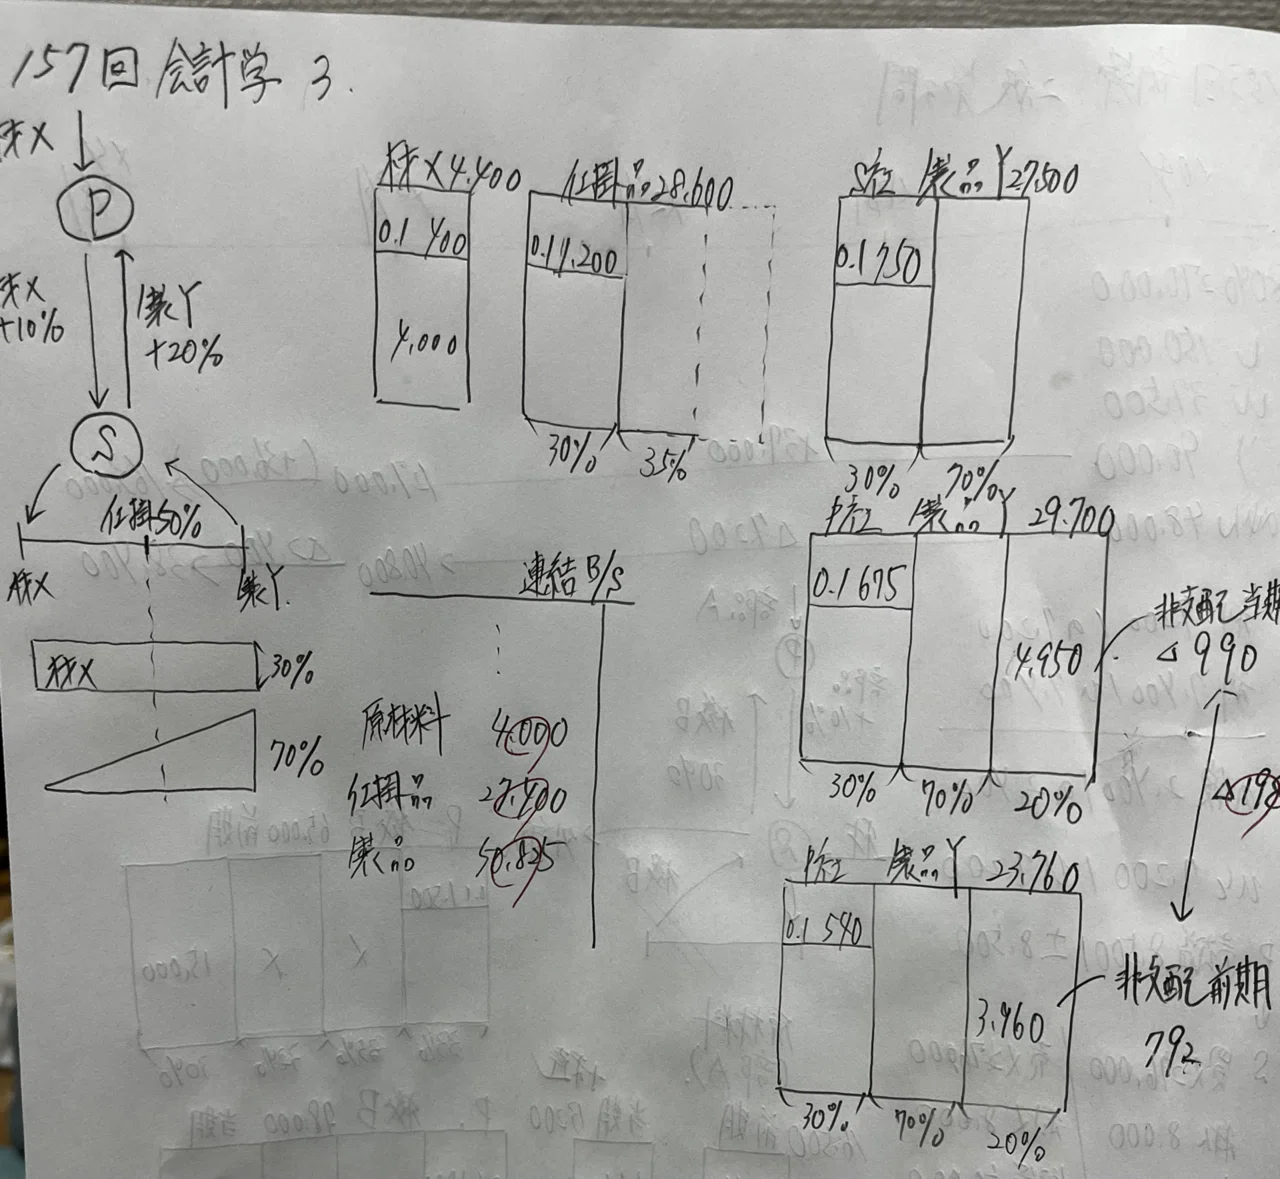 157回 会計学 3.
材X
P
材X
+10%
製Y
+20%
S
仕掛50%
材X
製Y.
材X
30%
70%
材X 4.400
0.1 400
4,000
仕掛品 28.600
0.1 1.200
30%
35%
S社 製品Y 27,500
0.1 750
30%
70%
P社 製品Y 29.700
0.1 675
4.950
30%
70%
20%
非支配当期
△990
△198
P社 製品Y 23.760
0.1 540
3.960
30%
70%
20%
非支配前期
792
連結B/S
原材料 4.000
仕掛品 27.400
製品 50.825